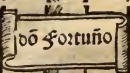 dõ Fortuño